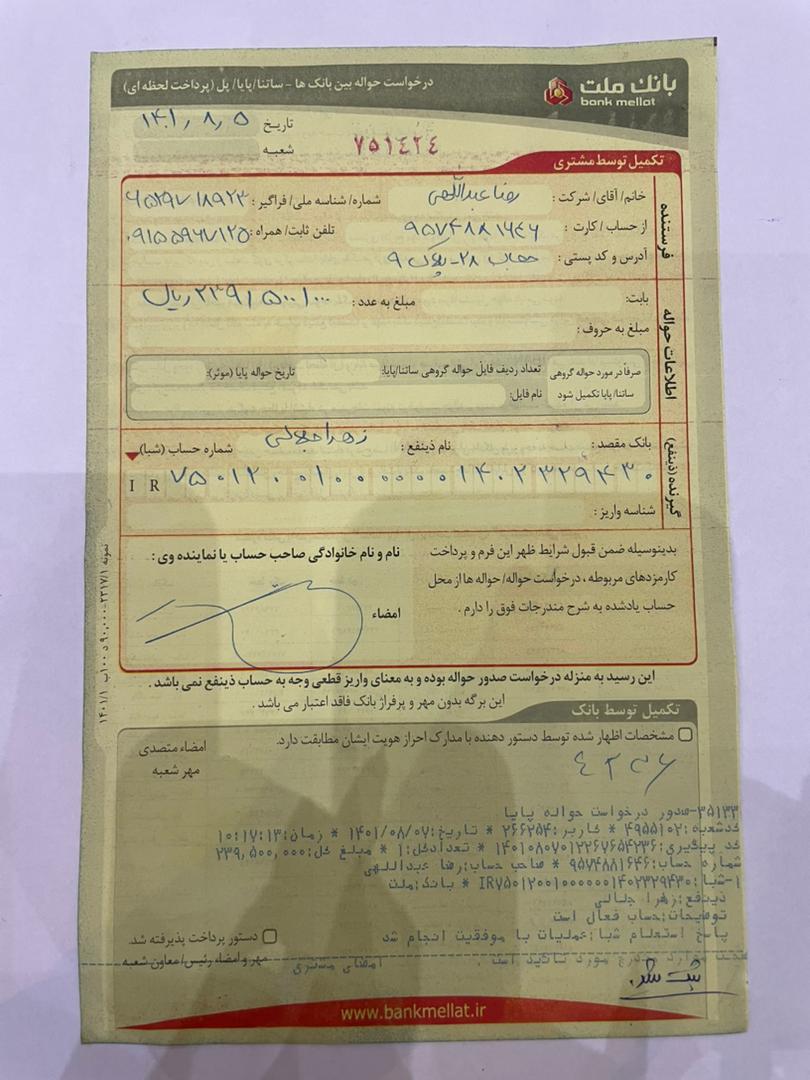 بانک ملت
bank mellat
درخواست حواله بین بانک ها - ساتنا/پایا/ پل (پرداخت لحظه ای)
تاریخ ۱۴۰۱,۸,۵
شعبه
۷۵۱۴۲۴
تکمیل توسط مشتری
فرستنده
خانم/ آقای/ شرکت: رضا عبداللهی شماره/ شناسه ملی/ فراگیر:
از حساب / کارت: ۹۵۷۴۸۸۱۶۴۶ تلفن ثابت/ همراه: ۰۹۱۵۵۹۶۷۱۲۵
آدرس و کد پستی: ۲۸- پلاک ۹
اطلاعات حواله
بابت: مبلغ به عدد: ۲۳۹/۵۰۰/۰۰۰ ریال
مبلغ به حروف:
صرفاً در مورد حواله گروهی ساتنا/ پایا تکمیل شود
تعداد ردیف فایل حواله گروهی ساتنا/پایا: تاریخ حواله پایا (موثر):
نام فایل:
گیرنده (ذینفع)
بانک مقصد: نام ذینفع: زهرا جلالی شماره حساب (شبا)
IR ۷۵۰۱۲۰۰۱۰۰۰۰۰۰۰۱۴۰۲۳۲۹۴۳۰
شناسه واریز:
بدینوسیله ضمن قبول شرایط ظهر این فرم و پرداخت
کارمزدهای مربوطه، درخواست حواله/ حواله ها از محل
حساب یادشده به شرح مندرجات فوق را دارم.
نام و نام خانوادگی صاحب حساب یا نماینده وی:
امضاء
این رسید به منزله درخواست صدور حواله بوده و به معنای واریز قطعی وجه به حساب ذینفع نمی باشد.
این برگه بدون مهر و پرفراژ بانک فاقد اعتبار می باشد.
تکمیل توسط بانک
مشخصات اظهار شده توسط دستور دهنده با مدارک احراز هویت ایشان مطابقت دارد.
امضاء متصدی
مهر شعبه
۳۵۱۳۳-صدور درخواست حواله پایا
کدشعبه:۴۹۵۵۱۰۲ * کاربر:۲۶۶۲۵۴ * تاریخ:۱۴۰۱/۰۸/۰۷ * زمان:۱۰:۱۷:۱۳
کد پیگیری:۱۴۰۱۰۸۰۷۰۱۲۲۶۷۶۵۴۲۳۶ * تعدادکل:۱ * مبلغ کل:۲۳۹,۵۰۰,۰۰۰
شماره حساب:۹۵۷۴۸۸۱۶۴۶ * صاحب حساب:رضا عبداللهی
۱-شبا:IR۷۵۰۱۲۰۰۱۰۰۰۰۰۰۰۱۴۰۲۳۲۹۴۳۰ * بانک:ملت
ذینفع:زهرا جلالی
توضیحات:حساب فعال است
پاسخ استعلام شبا:عملیات با موفقیت انجام شد
مورد تائید است. امضای مشتری
دستور پرداخت پذیرفته شد.
مهر و امضاء رئیس/ معاون شعبه
ثبت شد.
www.bankmellat.ir